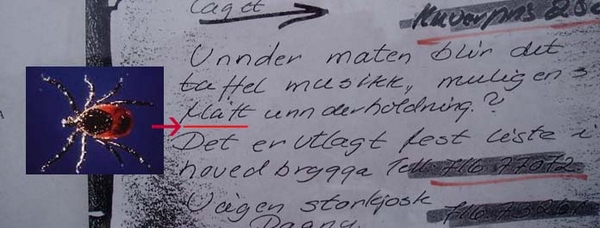 laget Kuverpris
Unnder maten blir det
taffel musikk, muligens
flått unnderholdning.?
Det er utlagt fest liste i
hoved brygga Tell
Vågen storkjosk
Dagny